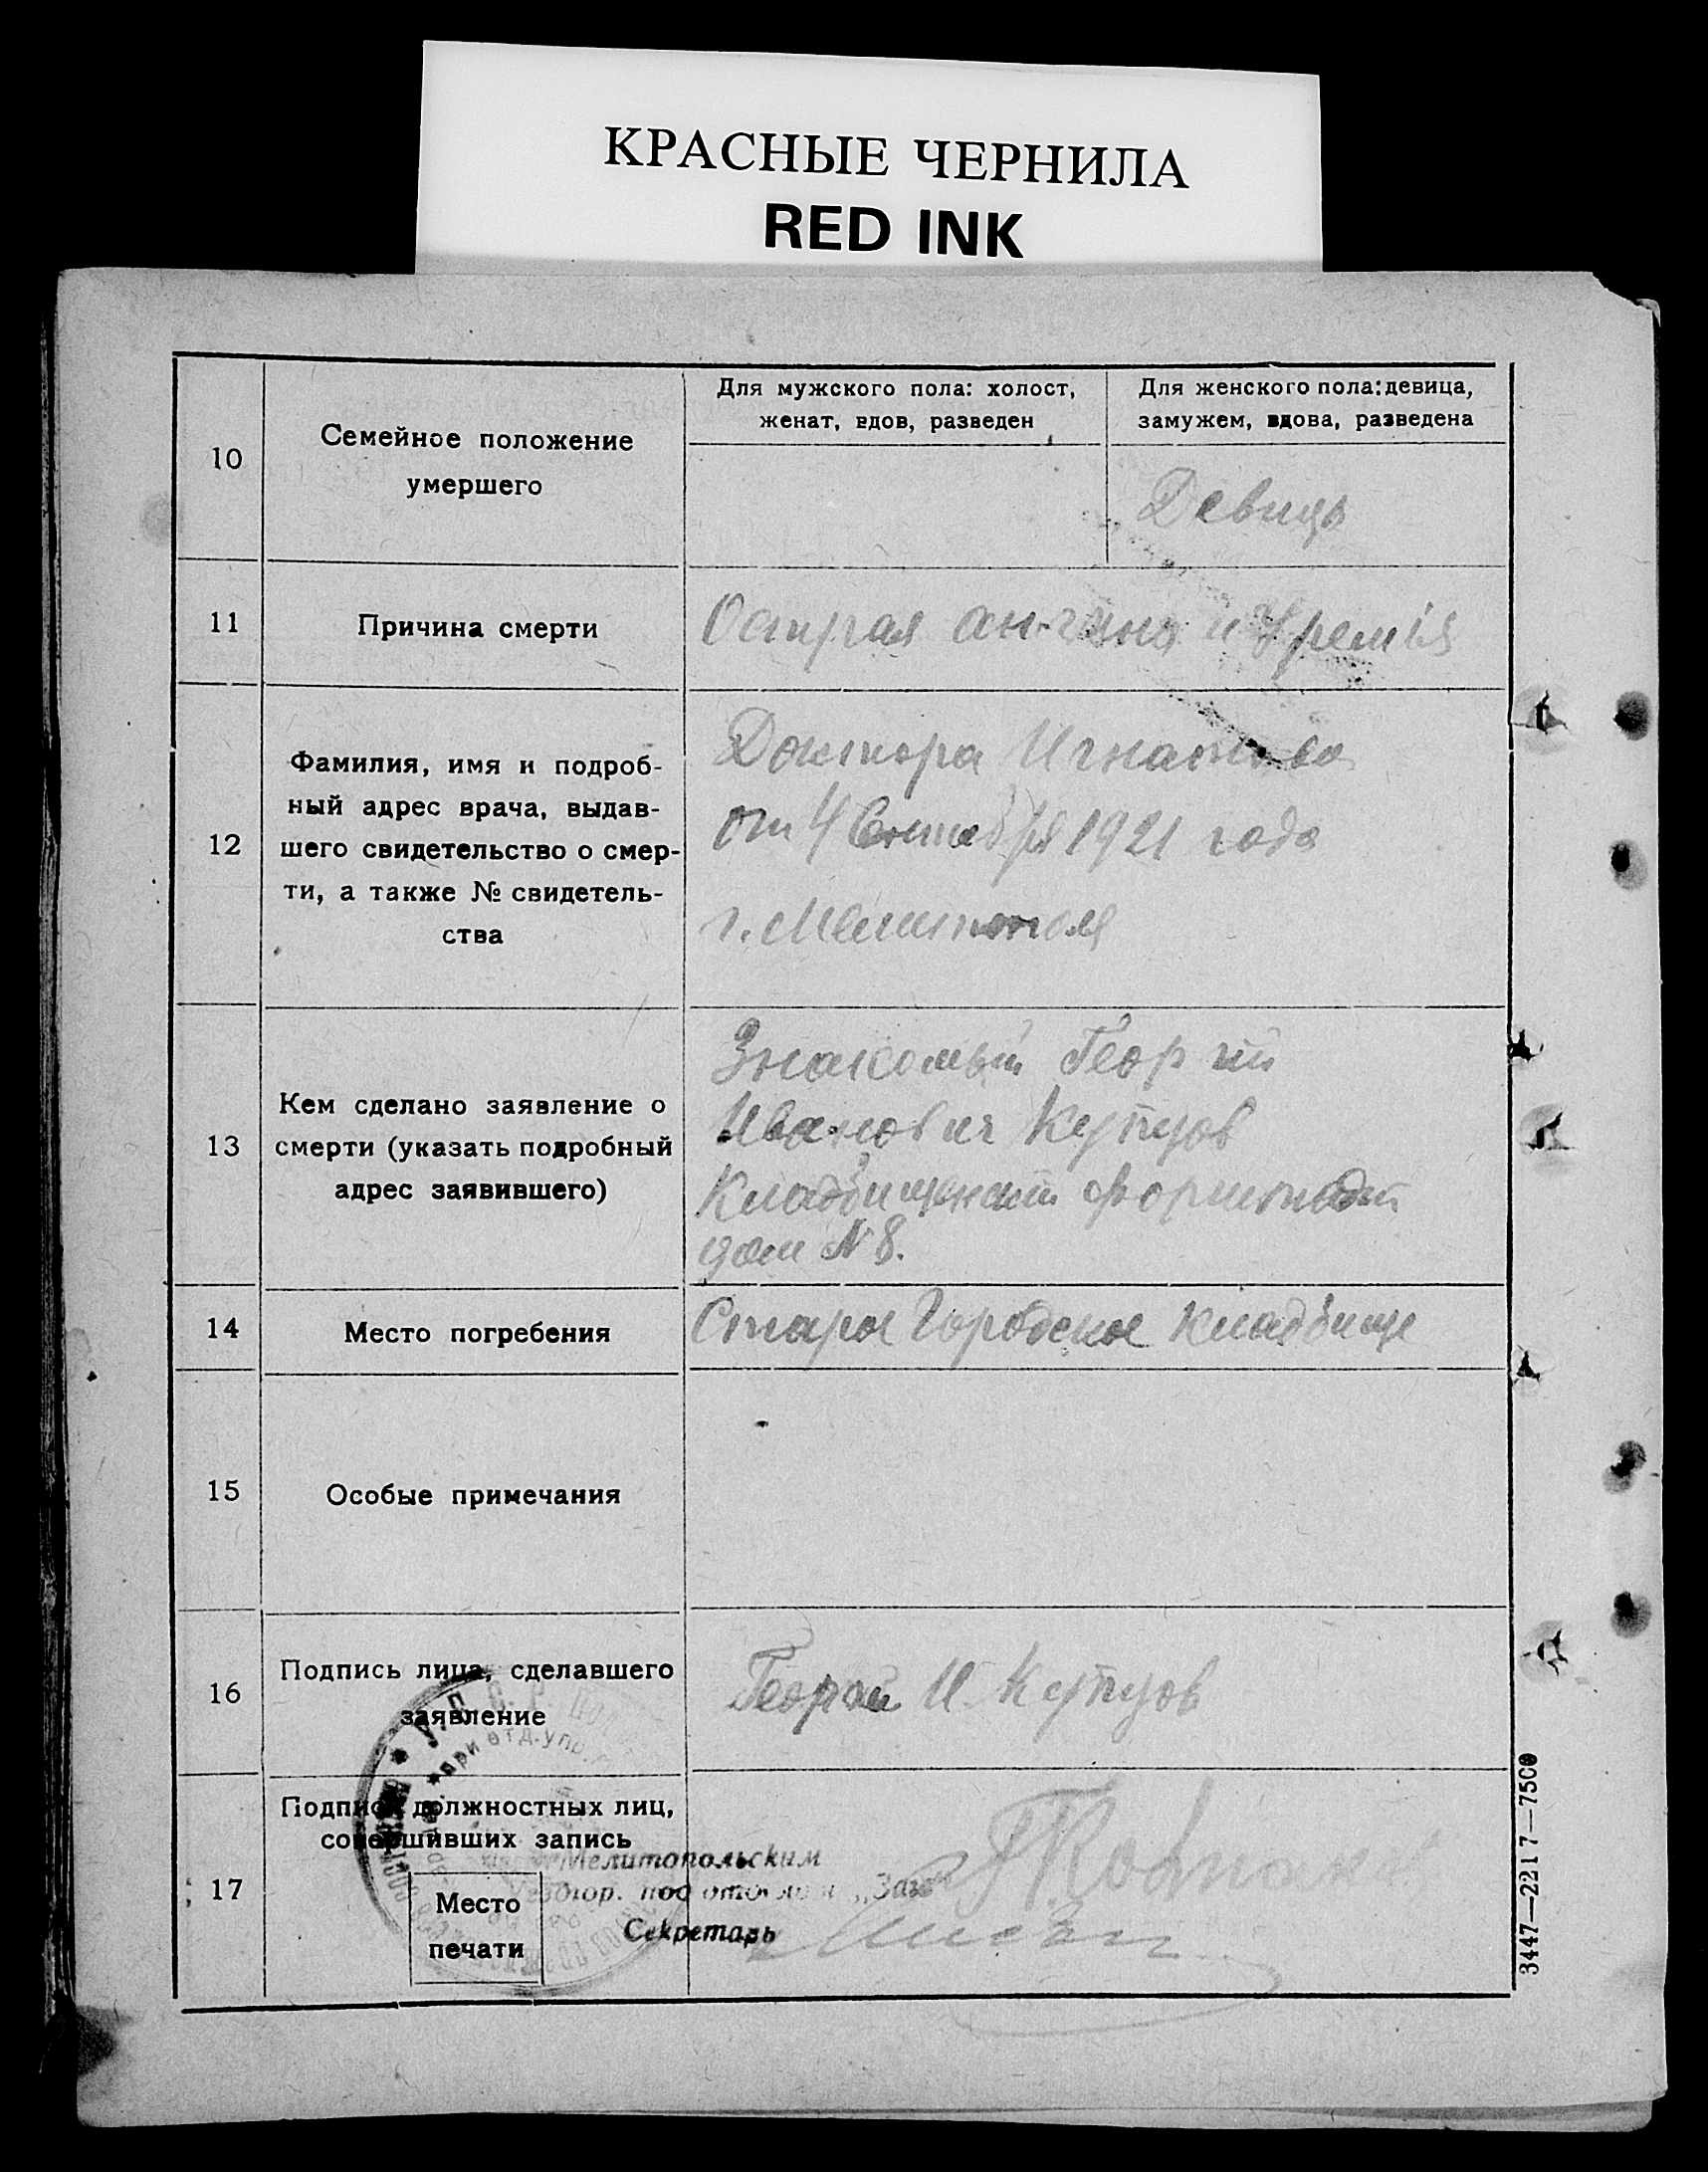 КРАСНЫЕ ЧЕРНИЛА
RED INK
10
Семейное положение
умершего
Для мужского пола: холост,
женат, вдов, разведен
Для женского пола: девица,
замужем, вдова, разведена
Девица
11
Причина смерти
Острая ангина и Уремія
12
Фамилия, имя и подроб-
ный адрес врача, выдав-
шего свидетельство о смер-
ти, а также № свидетель-
ства
Доктора Игнатьева
от 4 Сентября 1921 года
г. Мелитополя
13
Кем сделано заявление о
смерти (указать подробный
адрес заявившего)
Знакомый Георгий
Иванович Купцов
Кладбищенский форштадт
дом № 8.
14
Место погребения
Старое Городское Кладбище
15
Особые примечания
16
Подпись лица, сделавшего
заявление
Георгий И. Купцов
17
Подписи должностных лиц,
совершивших запись
Место
печати
Мелитопольским
под
Секретарь
У. С. С. Р.
при отд. упр.
3447—2217—7500